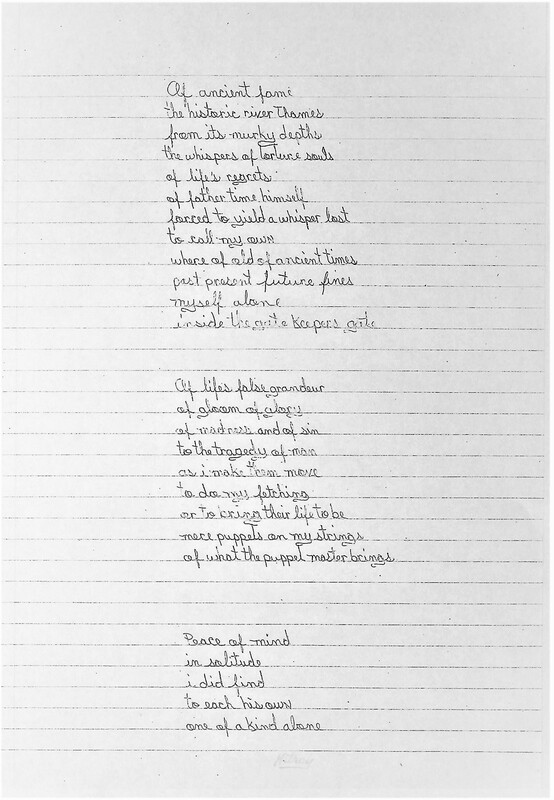 Of ancient fame
the historic river Thames
from its murky depths
the whispers of torture souls
of life's regrets
of father time himself
forced to yield a whisper lost
to call my own
where of old of ancient times
past present future fines
myself alone
inside the gate keepers gate
Of life's false grandeur
of gloom of glory
of madness and of sin
to the tragedy of man
as i make them move
to do my fetching
or to bring their life to be
mere puppets on my strings
of what the puppet master brings
Peace of mind
in solitude
i did find
to each his own
one of a kind alone